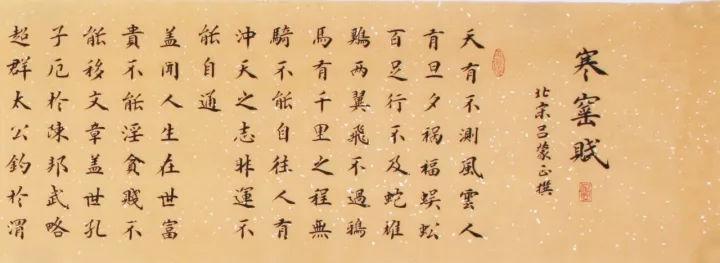 寒窑賦
北宋呂蒙正撰
天有不測風雲人
有旦夕禍福蜈蚣
百足行不及蛇雄
鷄兩翼飛不過鴉
馬有千里之程無
騎不能自往人有
沖天之志非運不
能自通
盖聞人生在世富
貴不能淫貧賤不
能移文章盖世孔
子厄於陳邦武略
超群太公釣於渭